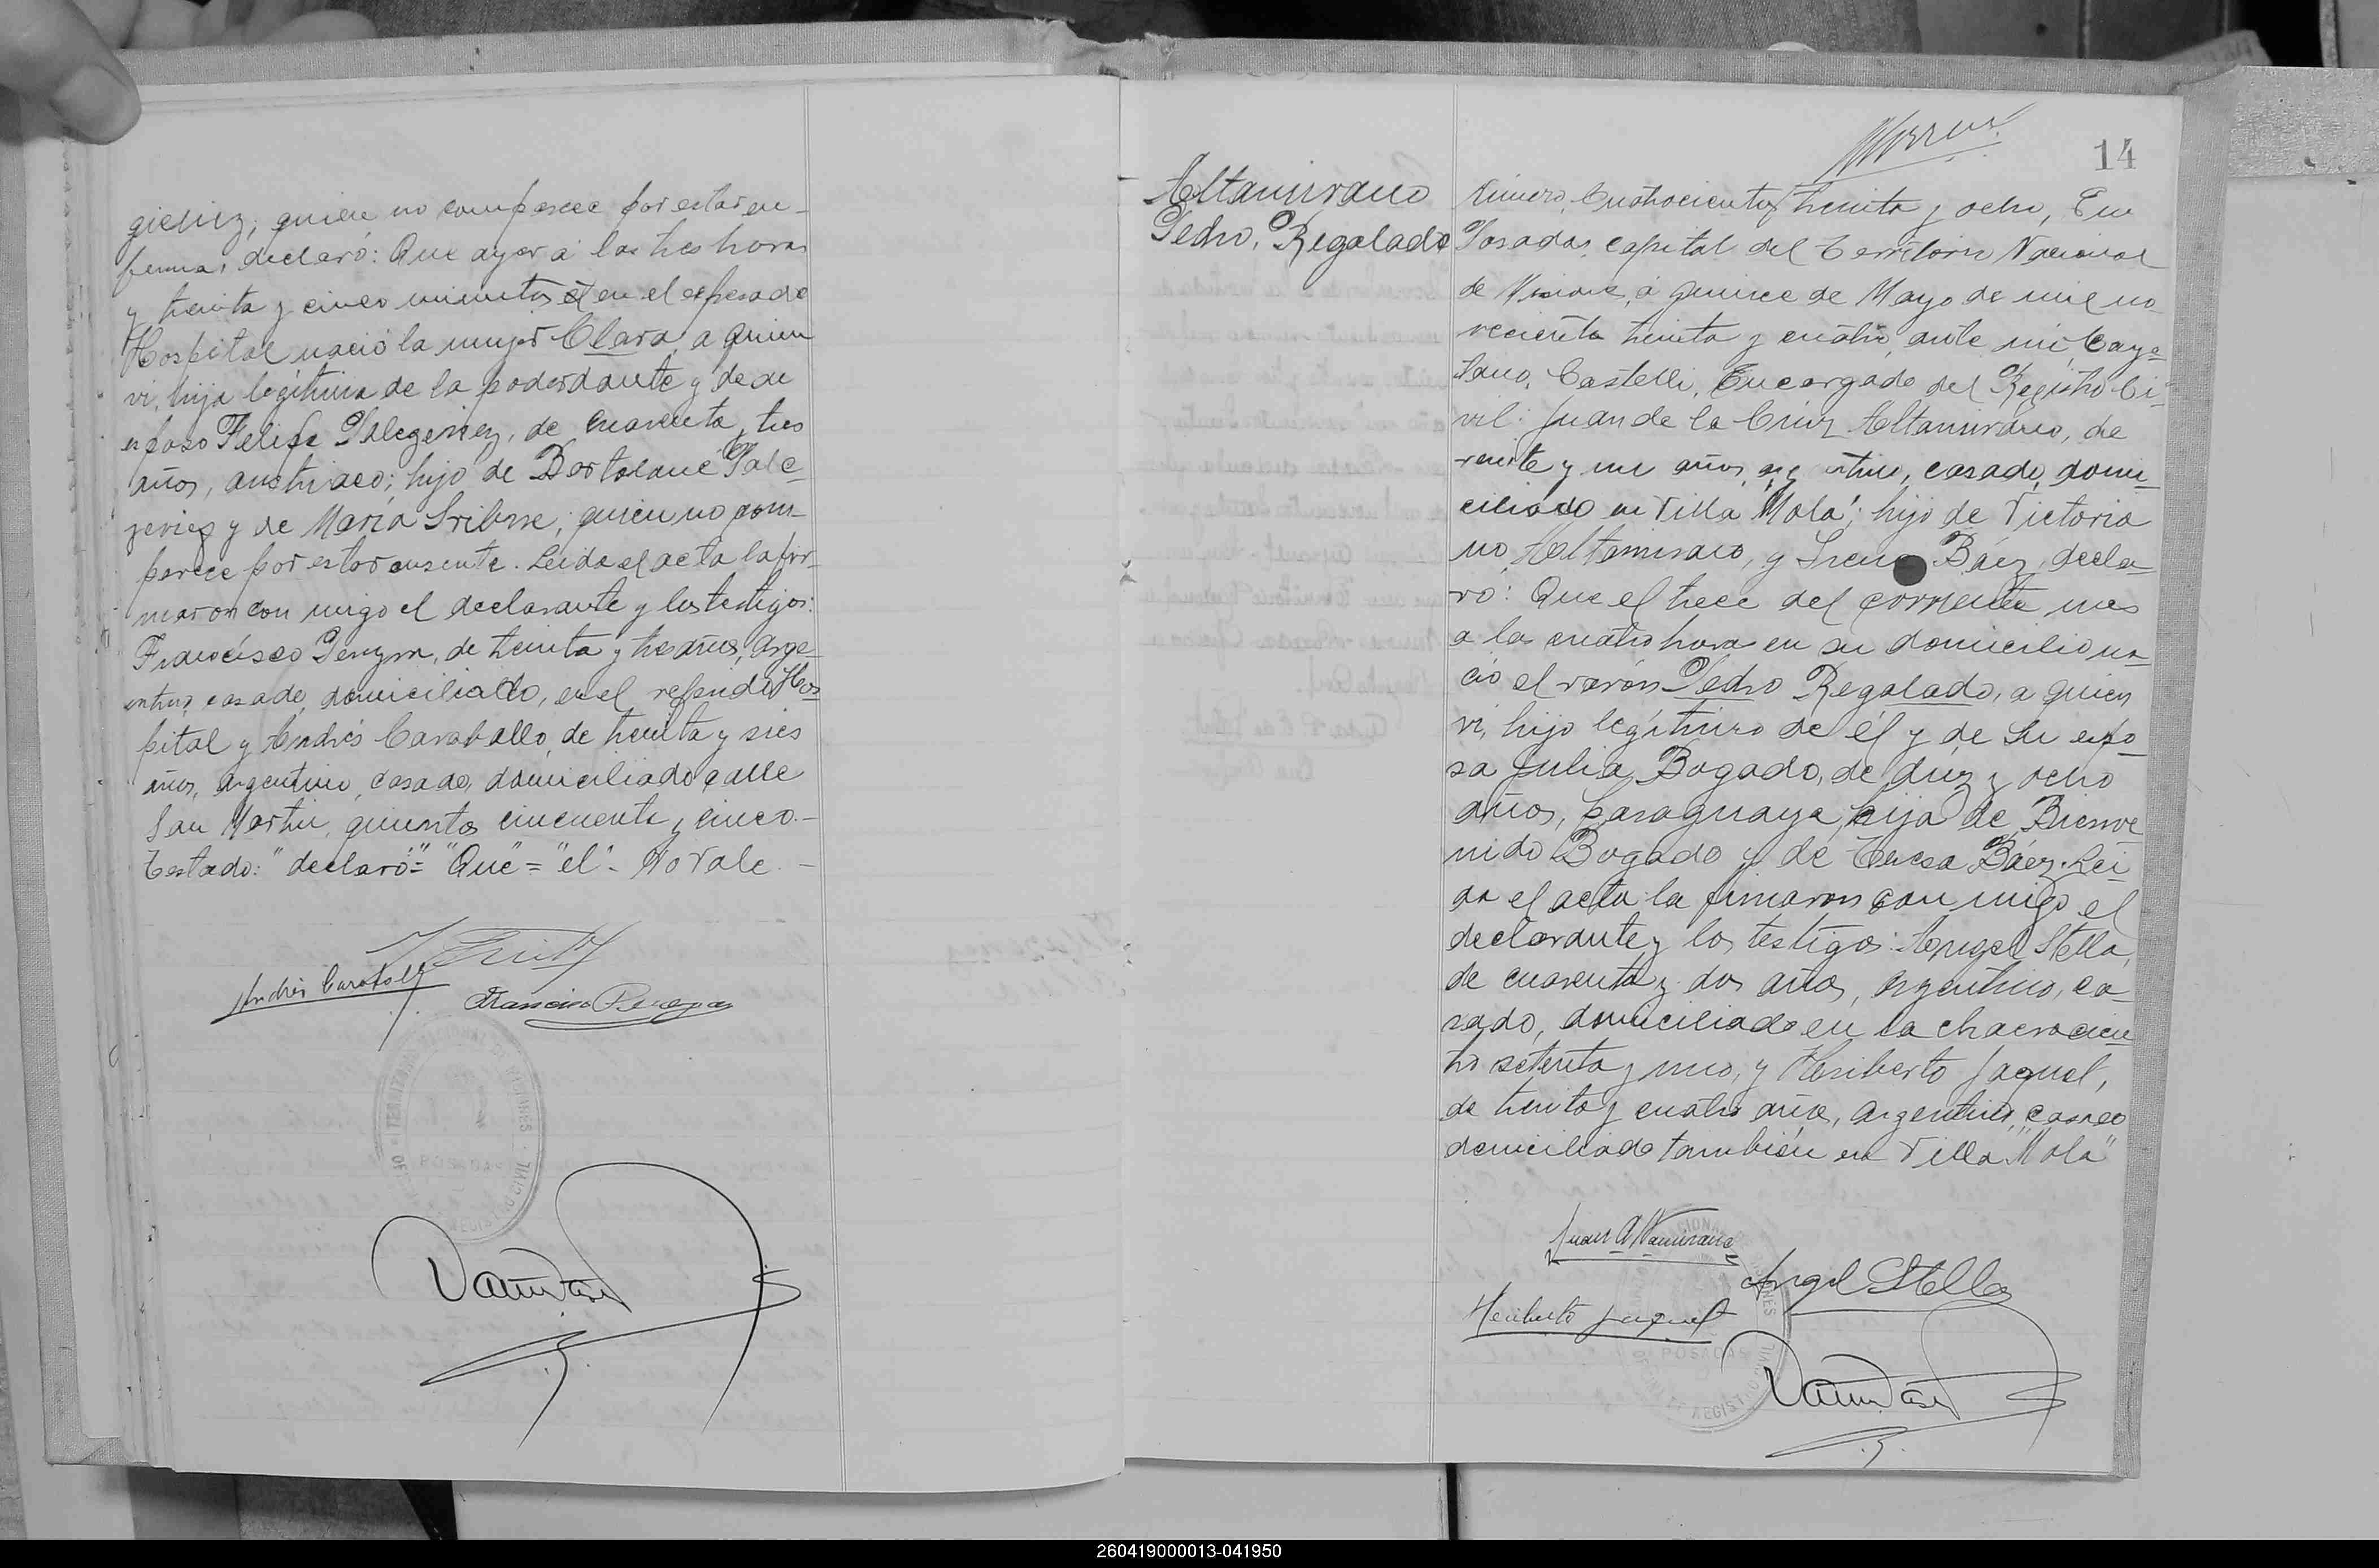 quien no comparece por estar en-
ferma, declaró: Que ayer á las tres horas
y treinta y cinco minutos el en el expresado
Hospital nació la mujer Clara, a quien
vi, hija legítima de la poderdante y de su
esposo Felipe de cuarenta y tres
años, austriaco; hijo de
y de María quien no com-
parece por estar ausente. Leida el acta la fir-
maron con migo el declarante y los testigos:
Francisco de treinta y tres años, arge-
ntino, casado, domiciliado, en el referido Hos-
pital y Andrés Caraballo, de treinta y sies
años, argentino, casado, domiciliado calle
San Martin, quinientos cincuenta y cinco.-
Testado: "declaró"= "Que" = "el"- No Vale.-
Andrés Caraballo
Francisco
TERRITORIO NACIONAL DE MISIONES
POSADAS
REGISTRO CIVIL
14
Altamirano
Pedro, Regalado
Número, Cuatrocientos treinta y ocho, En
Posadas, capital del Territorio Nacional
de Misiones, á quince de Mayo de mil no-
vecientos treinta y cuatro, ante mí, Caye-
tano, Castelli, Encargado del Registro Ci-
vil: Juan de la Cruz Altamirano, de
veinte y un años, argentino, casado, domi-
ciliado en Villa "Mola"; hijo de Victoria
no, Altamirano, y Báez, decla-
ró: Que el trece del corriente mes
a las cuatro hora en su domicilio na-
ció el varón Pedro Regalado, a quien
vi, hijo legítimo de él y de su espo-
sa Julia Bogado, de diez y ocho
años, paraguaya, hija de Bienve
nido Bogado y de Teresa Báez. Lei-
da el acta la firmaron con migo el
declarante y los testigos: Angel Stella,
de cuarenta y dos años, argentino, ca-
sado, domiciliado en la chacra cien
to setenta y uno, y Heriberto Jaquet,
de treinta y cuatro años, argentino, casado
domiciliado también en Villa "Mola"
Juan Altamirano
Angel Stella
Heriberto Jaquet
POSADAS
260419000013-041950